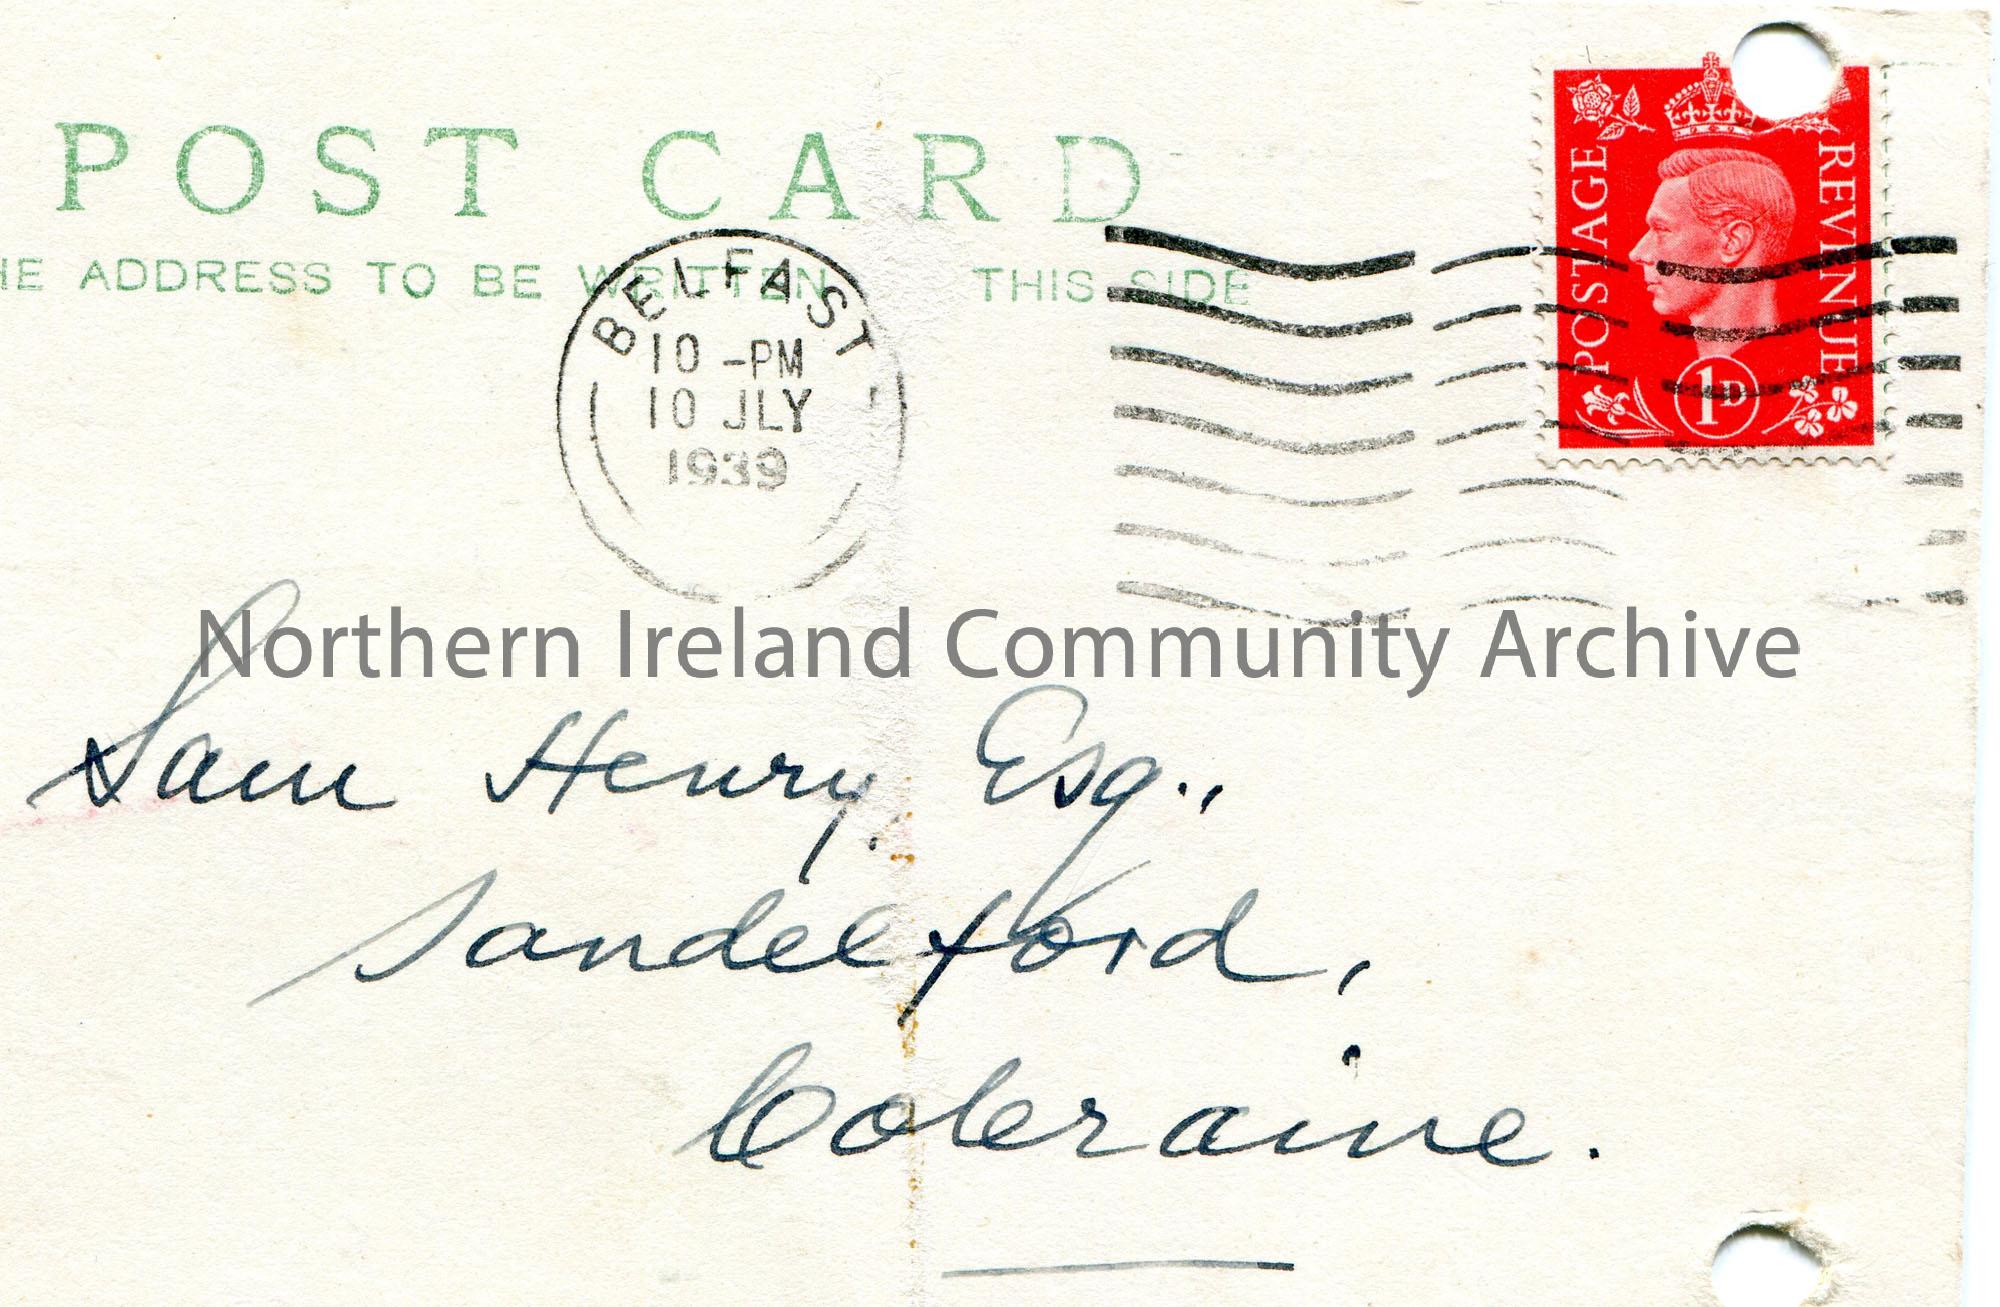 POST CARD
HE ADDRESS TO BE WRITTEN THIS SIDE
BELFAST
10 -PM
10 JLY
1939
POSTAGE
REVENUE
1D
Northern Ireland Community Archive
Sam Henry Esq.,
Sandelford,
Coleraine.